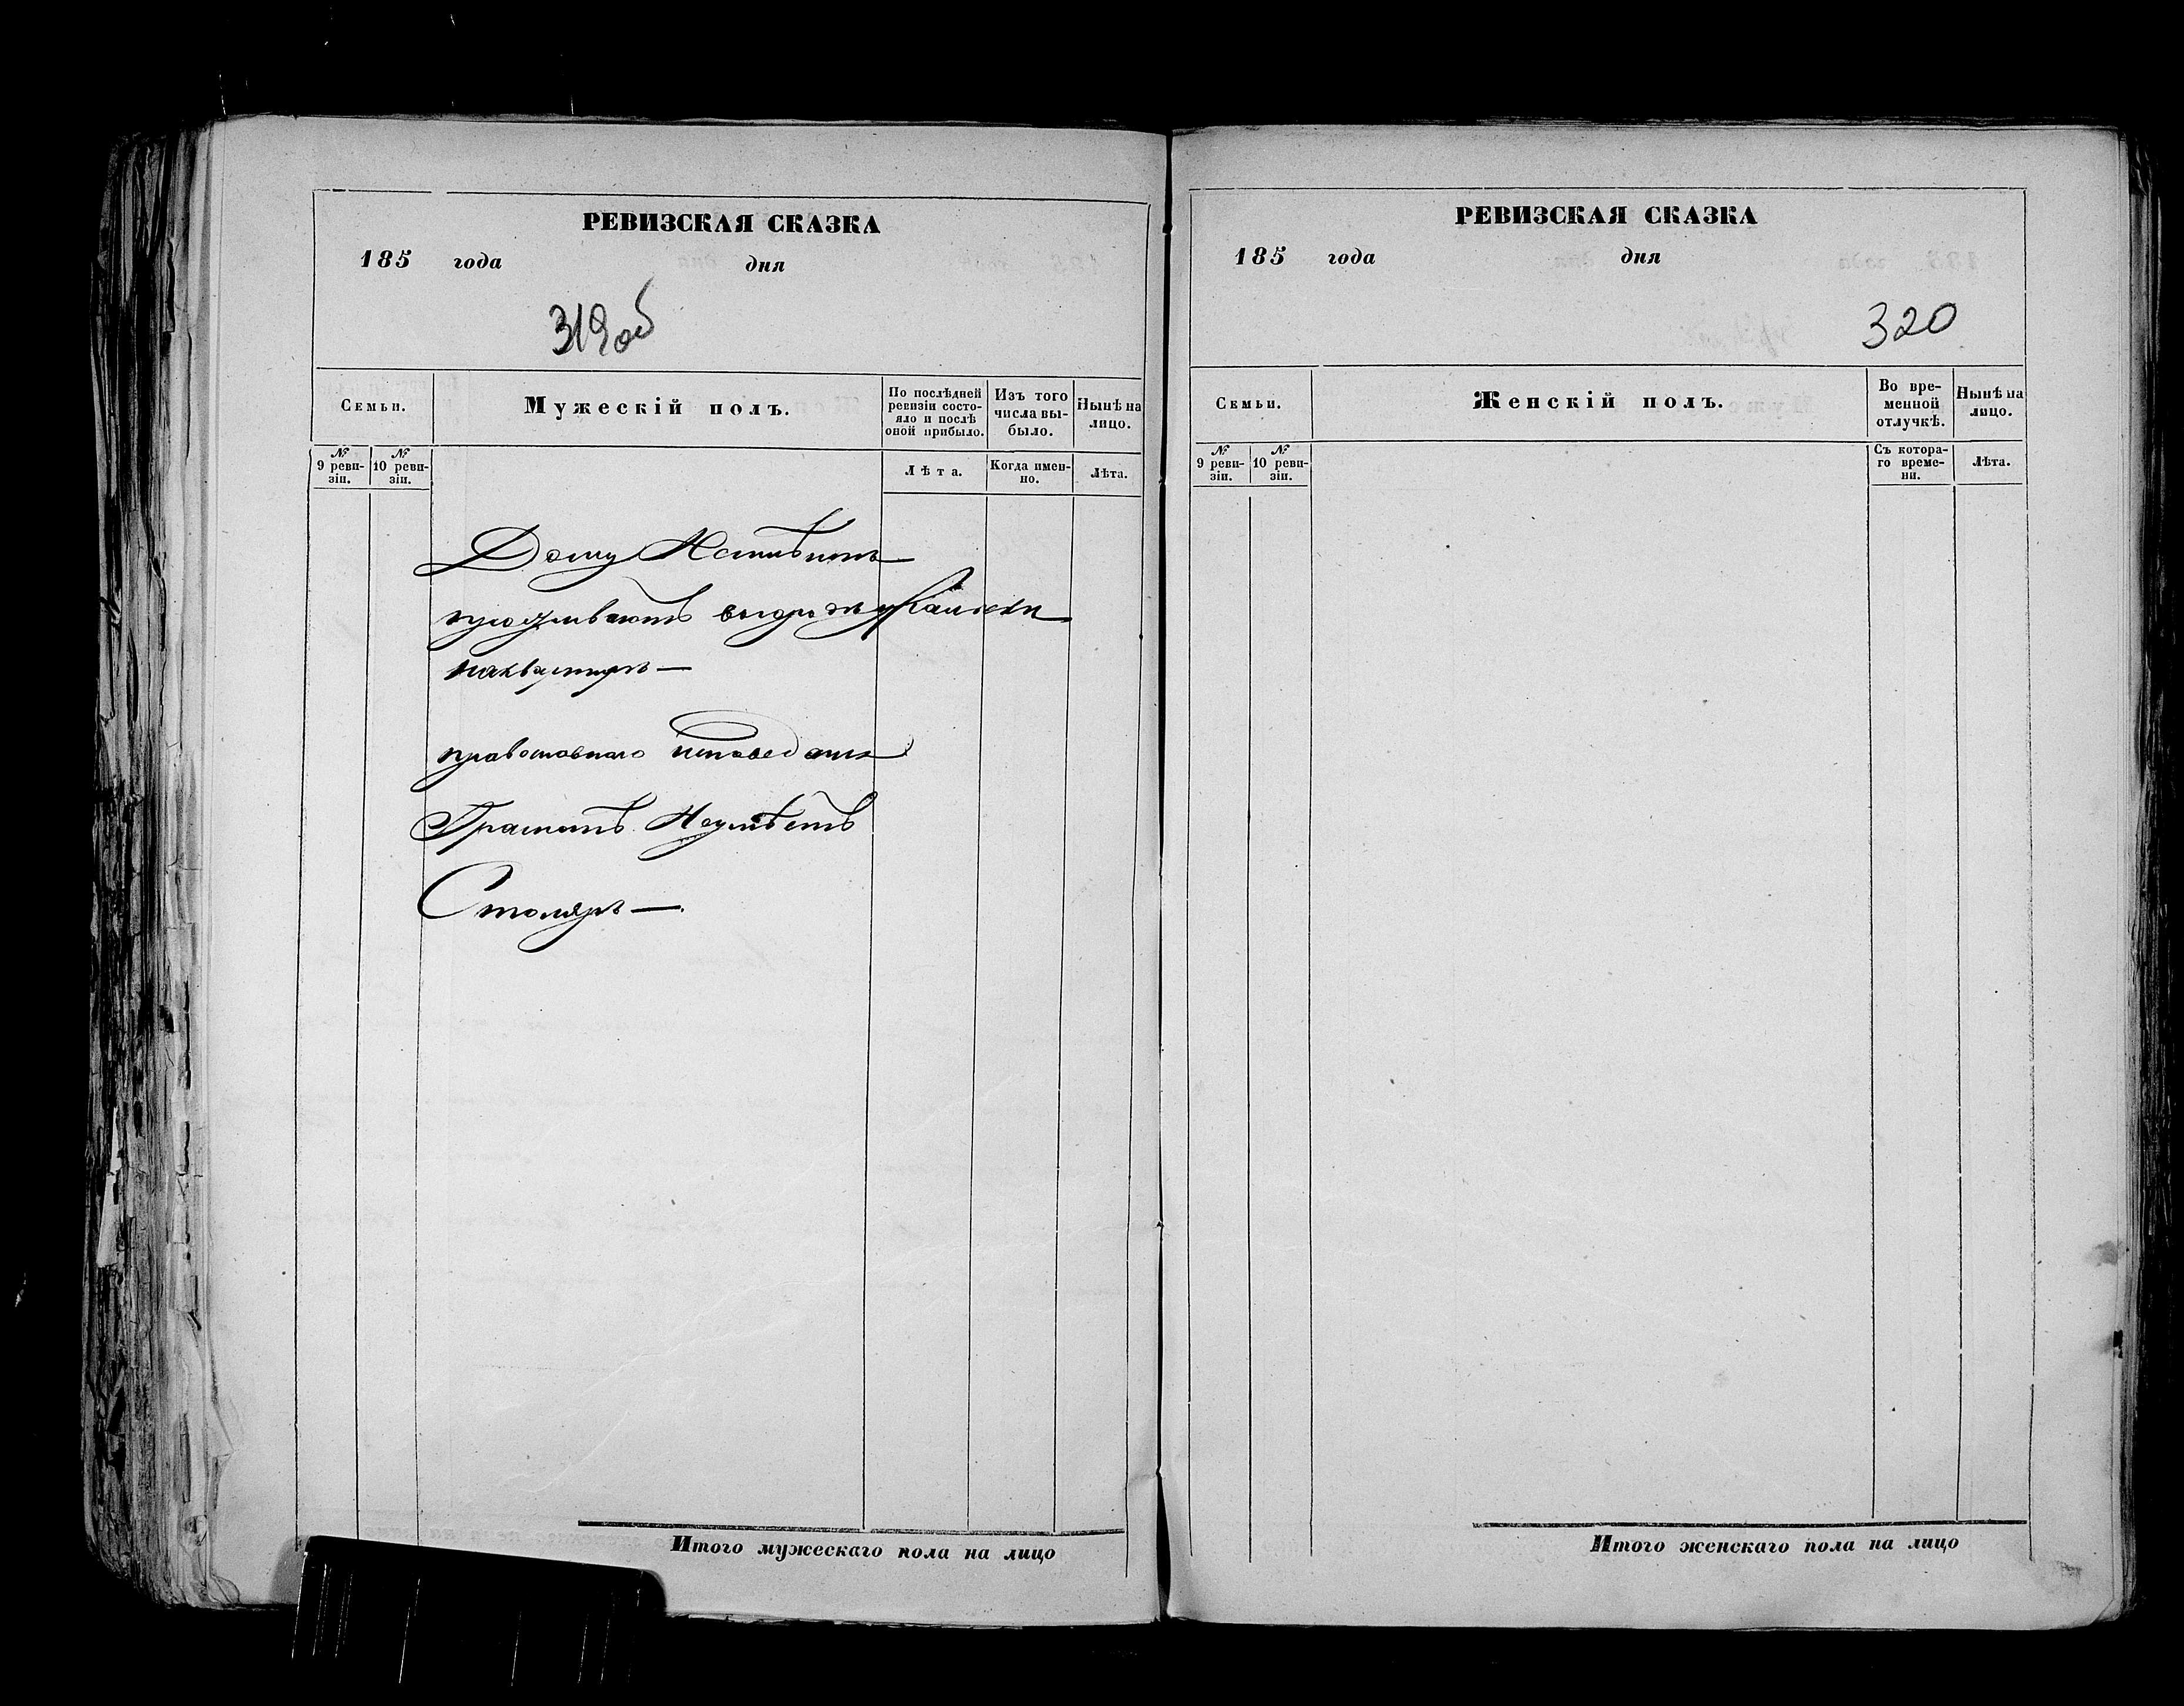 РЕВИЗСКАЯ СКАЗКА
185 года дня
319об
Семьи.
Мужескій полъ.
По послѣдней ревизіи состояло и послѣ оной прибыло.
Изъ того числа выбыло.
Нынѣ на лицо.
№ 9 ревизіи.
№ 10 ревизіи.
Лѣта.
Когда именно.
Лѣта.
Дому
проживаютъ
наквартирѣ —
православнаго исповедания
Грамотѣ Неумѣетъ
Столяръ —.
Итого мужескаго пола на лицо
РЕВИЗСКАЯ СКАЗКА
185 года дня
320
Семьи.
Женскій полъ.
Во временной отлучкѣ.
Нынѣ на лицо.
№ 9 ревизіи.
№ 10 ревизіи.
Съ котораго времени.
Лѣта.
Итого женскаго пола на лицо